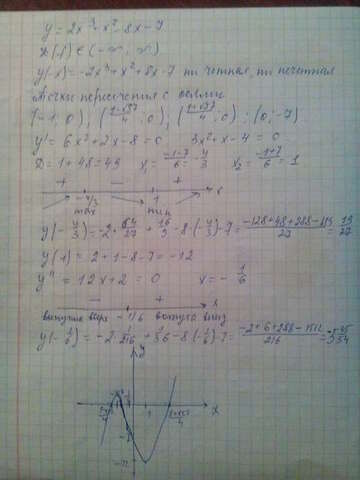 y = 2x³ + x² - 8x - 7
D(f) ∈ (-∞, ∞)
y(-x) = -2x³ + x² + 8x - 7 ни четная, ни нечетная
Точки пересечения с осями
(-1; 0); (\frac{1-\sqrt{57}}{4}; 0); (\frac{1+\sqrt{57}}{4}; 0); (0; -7)
y' = 6x² + 2x - 8 = 0 3x² + x - 4 = 0
D = 1 + 48 = 49 x₁ = \frac{-1-7}{6} = -\frac{4}{3} x₂ = \frac{-1+7}{6} = 1
+ - + x
-4/3 1
max min
y(-\frac{4}{3}) = -2 · \frac{64}{27} + \frac{16}{9} - 8 · (-\frac{4}{3}) - 7 = \frac{-128+48+288-189}{27} = \frac{19}{27}
y(1) = 2 + 1 - 8 - 7 = -12
y'' = 12x + 2 = 0 x = -\frac{1}{6}
- + x
выпукла вверх -1/6 выпукла вниз
y(-\frac{1}{6}) = -2 · \frac{1}{216} + \frac{1}{36} - 8 · (-\frac{1}{6}) - 7 = \frac{-2+6+288-1512}{216} =
y
1 x
-12